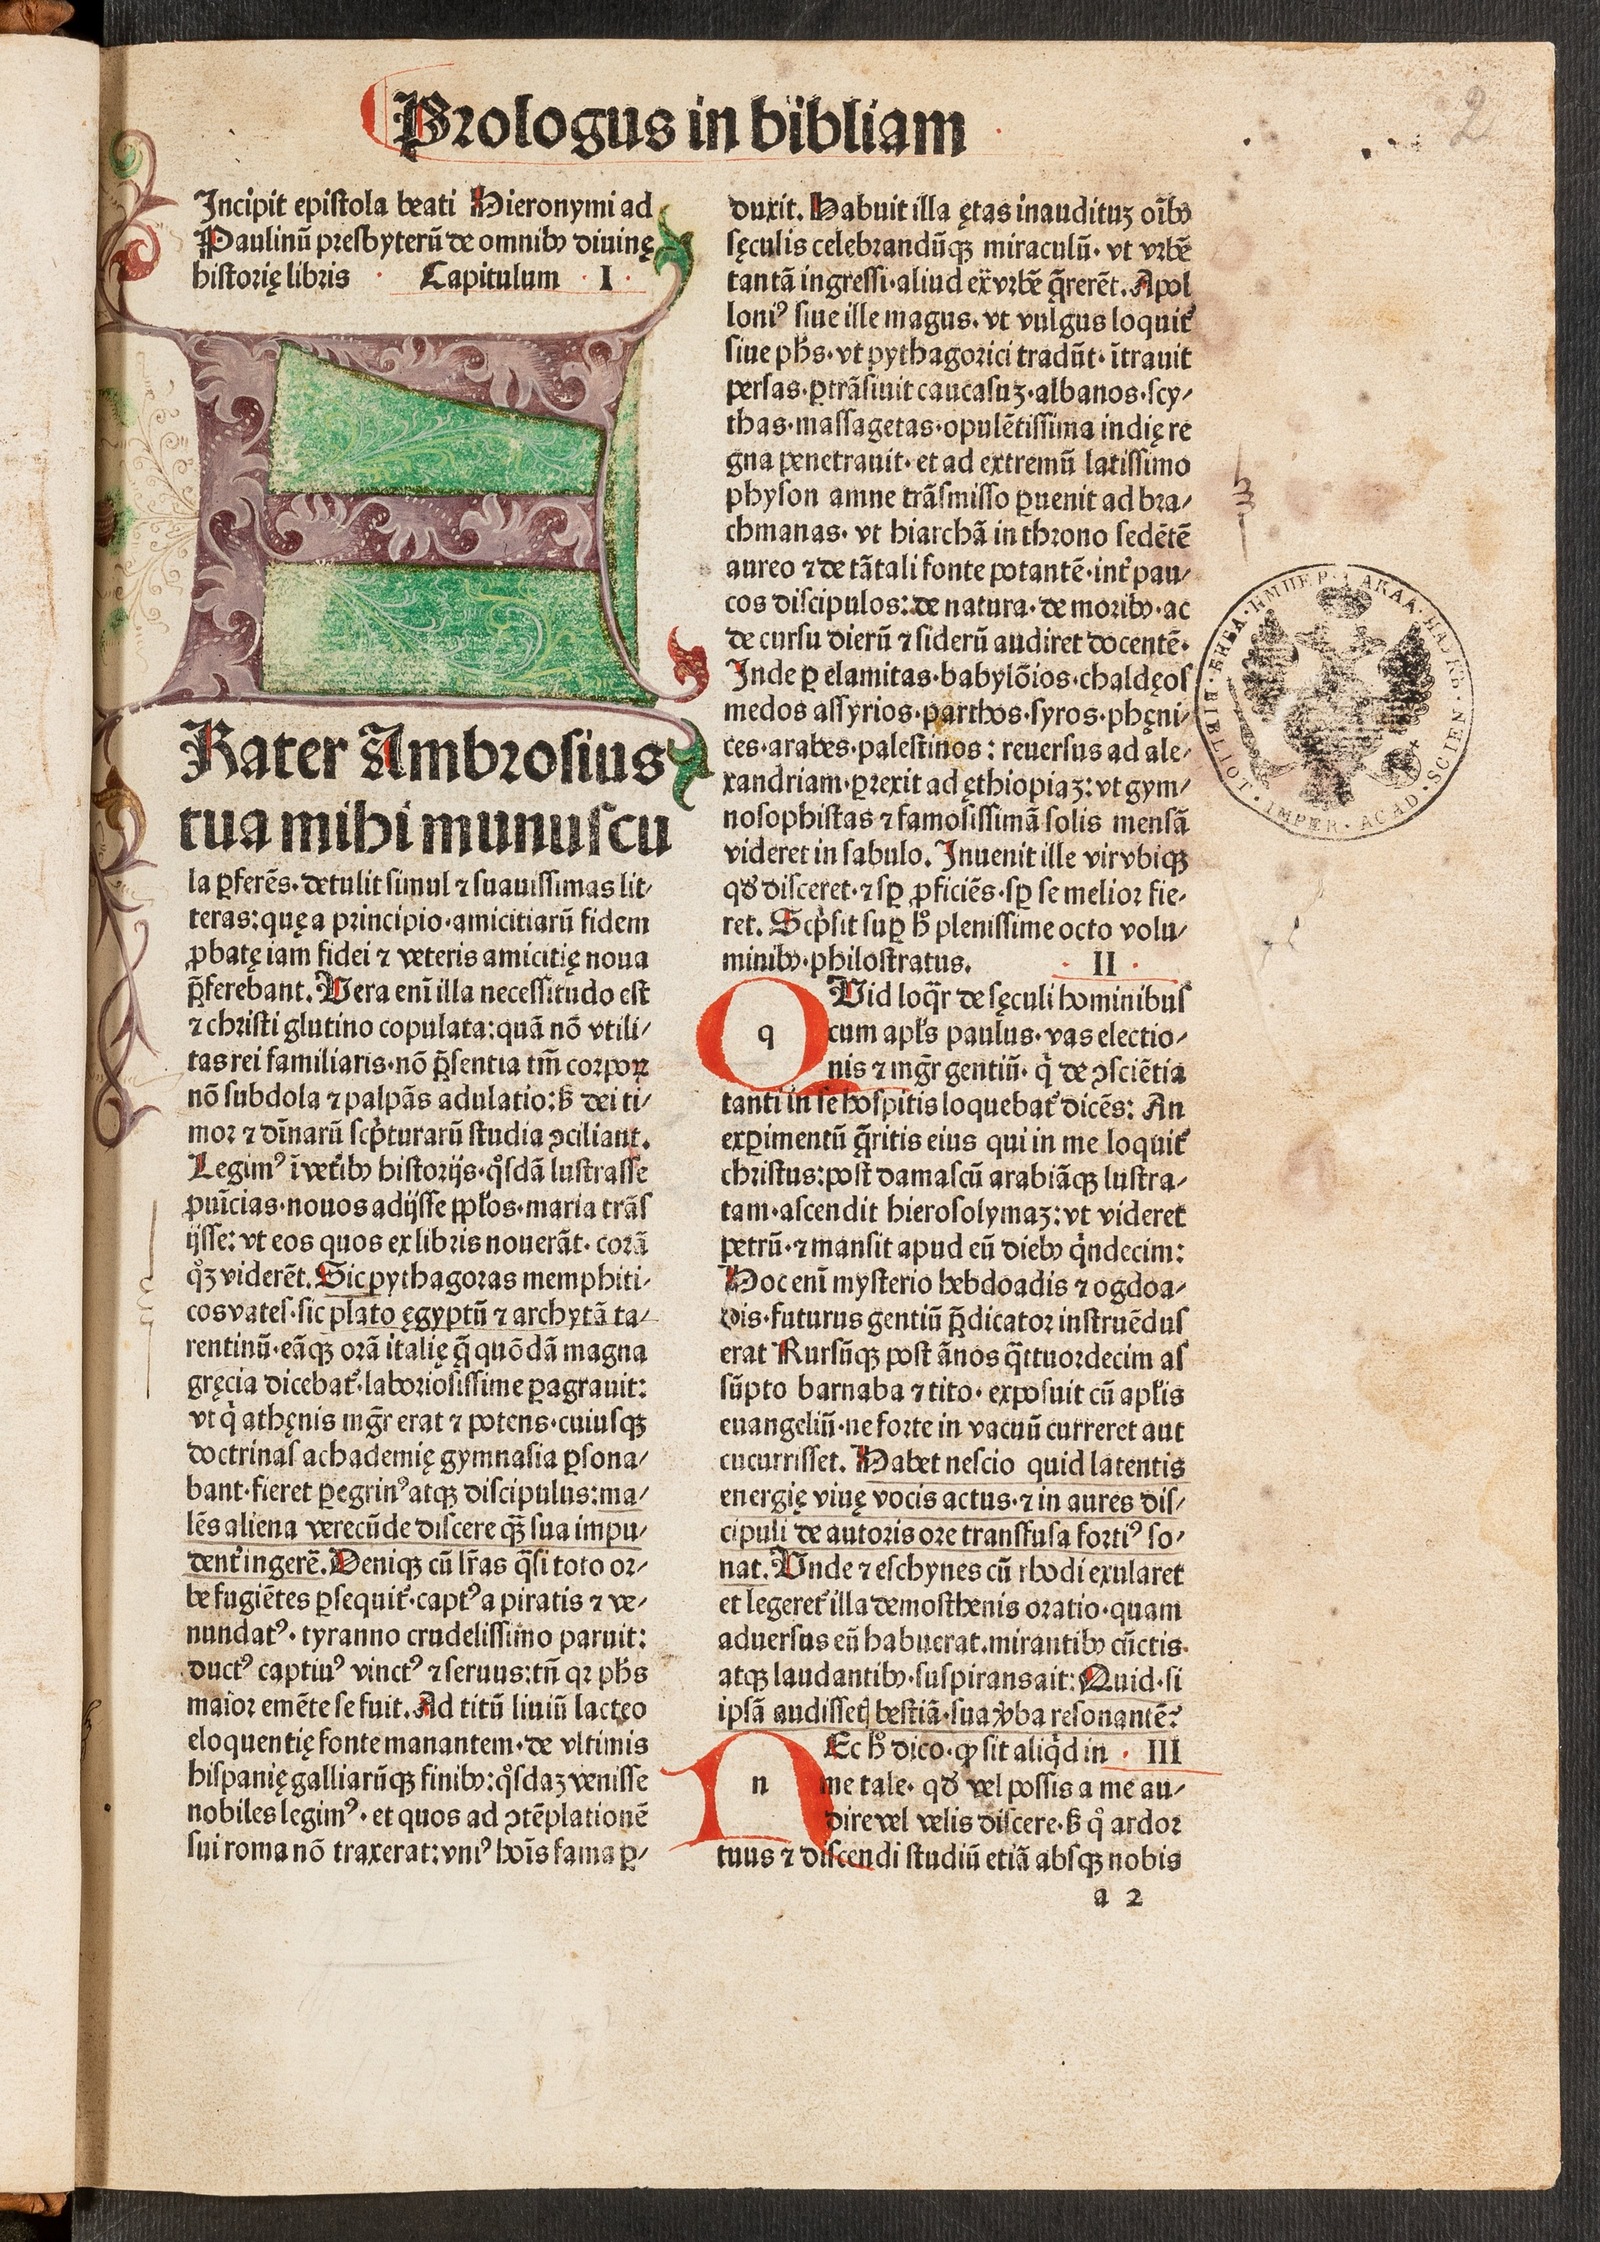 Prologus in bibliam
2
Incipit epistola beati Hieronymi ad
Paulinū presbyterū de omnibꝰ diuinę
historię libris · Capitulum · I ·
F
Rater Ambrosius
tua mihi munuscu
la ꝑferēs· detulit simul ⁊ suauissimas lit/
teras: quę a principio·amicitiarū fidem
ꝓbatę iam fidei ⁊ veteris amicitię noua
p̄ferebant. Vera enī illa necessitudo est
⁊ christi glutino copulata: quā nō vtili/
tas rei familiaris·nō p̄sentia tm̄ corpoꝝ
nō subdola ⁊ palpās adulatio: ß dei ti/
mor ⁊ dīnarū scp̄turarū studia ↄciliant.
Legimꝰ ī vetībꝰ historijs· qͦsdā lustrasse
puīcias·nouos adijsse pp̄los·maria trās
ijsse: vt eos quos ex libris nouerāt· corā
qͦꝫ viderēt. Sic pythagoras memphiti/
cos vates·sic plato ęgyptū ⁊ archytā ta/
rentinū·eāqꝫ orā italię q̄ quōdā magna
gręcia dicebat᷑·laboriosissime ꝑagrauit:
vt qͥ athęnis mgr̄ erat ⁊ potens· cuiusqꝫ
doctrinas achademię gymnasia ꝑsona/
bant·fieret ꝑegrinꝰ atqꝫ discipulus: ma/
lēs aliena verecūde discere qꝫ̄ sua impu/
dent᷑ ingerē. Deniqꝫ cū lr̄as q̄si toto or/
be fugiētes ꝑsequit᷑·captꝰ a piratis ⁊ ve/
nundatꝰ· tyranno crudelissimo paruit:
ductꝰ captiuꝰ vinctꝰ ⁊ seruus: tn̄ qꝛ ph̄s
maior emēte se fuit. Ad titū liuiū lacteo
eloquentię fonte manantem· de vltimis
hispanię galliarūqꝫ finibꝰ: qͦsdaꝫ venisse
nobiles legimꝰ· et quos ad ↄtēplationē
sui roma nō traxerat: vniꝰ hoīs fama ꝑ/
duxit. Habuit illa ętas inaudituꝫ oībꝰ
sęculis celebrandūqꝫ miraculū· vt vrbē
tantā ingressi·aliud ex̄ vrbē q̄rerēt. Apol
loniꝰ siue ille magus· vt vulgus loquit᷑
siue ph̄s· vt pythagorici tradūt· ītrauit
persas·ꝑtrāsiuit caucasuꝫ·albanos·scy/
thas·massagetas·opulētissima indię re
gna penetrauit· et ad extremū latissimo
physon amne trāsmisso ꝑuenit ad bra/
chmanas· vt hiarchā in throno sedētē
aureo ⁊ de tātali fonte potantē· int᷑ pau/
cos discipulos: de natura· de moribꝰ· ac
de cursu dierū ⁊ siderū audiret docentē·
Inde ꝑ elamitas·babylōios·chaldęos
medos assyrios·parthos·syros·phęni/
ces·arabes·palestinos: reuersus ad ale/
xandriam·ꝑrexit ad ęthiopiaꝫ: vt gym/
nosophistas ⁊ famosissimā solis mensā
videret in sabulo. Inuenit ille vir vbiqꝫ
qd̄ disceret· ⁊ sꝑ ꝓficiēs· sꝑ se melior fie/
ret. Scp̄sit suꝑ hͦ plenissime octo volu/
minibꝰ·philostratus. · II ·
q Vid loq̄r de sęculi hominibus
cum apl̄s paulus· vas electio/
nis ⁊ mgr̄ gentiū· qͥ de ↄsciētia
tanti in se hospitis loquebat᷑ dicēs: An
exꝑimentū q̄ritis eius qui in me loquit᷑
christus: post damascū arabiāqꝫ lustra/
tam·ascendit hierosolymaꝫ: vt videret
petrū· ⁊ mansit apud eū diebꝰ qͥndecim:
Hoc enī mysterio hebdoadis ⁊ ogdoa/
dis·futurus gentiū p̄dicator instruēdus
erat Rursūqꝫ post ānos q̄ttuordecim as
sūpto barnaba ⁊ tito· exposuit cū apl̄is
euangeliū·ne forte in vacuū curreret aut
cucurrisset. Habet nescio quid latentis
energię viuę vocis actus· ⁊ in aures dis/
cipuli de autoris ore transfusa fortiꝰ so/
nat. Vnde ⁊ eschynes cū rhodi exularet
et legeret᷑ illa demosthenis oratio·quam
aduersus eū habuerat·mirantibꝰ cūctis·
atqꝫ laudantibꝰ·suspirans ait: Quid·si
ipsā audissetꝭ bestiā·sua v̄ba resonantē?
n Ec hͦ dico· ꝙ sit aliqͥd in · III
me tale· qd̄ vel possis a me au/
dire vel velis discere· ß qͦ ardor
tuus ⁊ discendi studiū etiā absqꝫ nobis
a 2
БИБЛ · ИМПЕР · АКАД · НАУКЪ
BIBLIOT · IMPER · ACAD · SCIEN